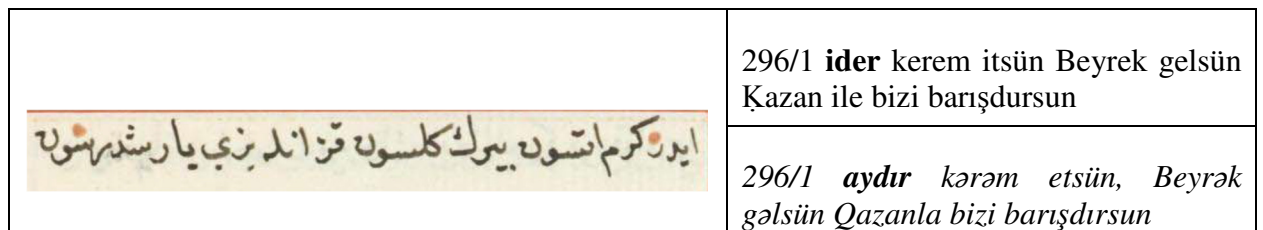 ايدر كرم اتسون بيرك كلسون قزانله بزي بارشدرسون
296/1 ider kerem itsün Beyrek gelsün
Ḳazan ile bizi barışdursun
296/1 aydır kərəm etsün, Beyrək
gəlsün Qazanla bizi barışdırsun